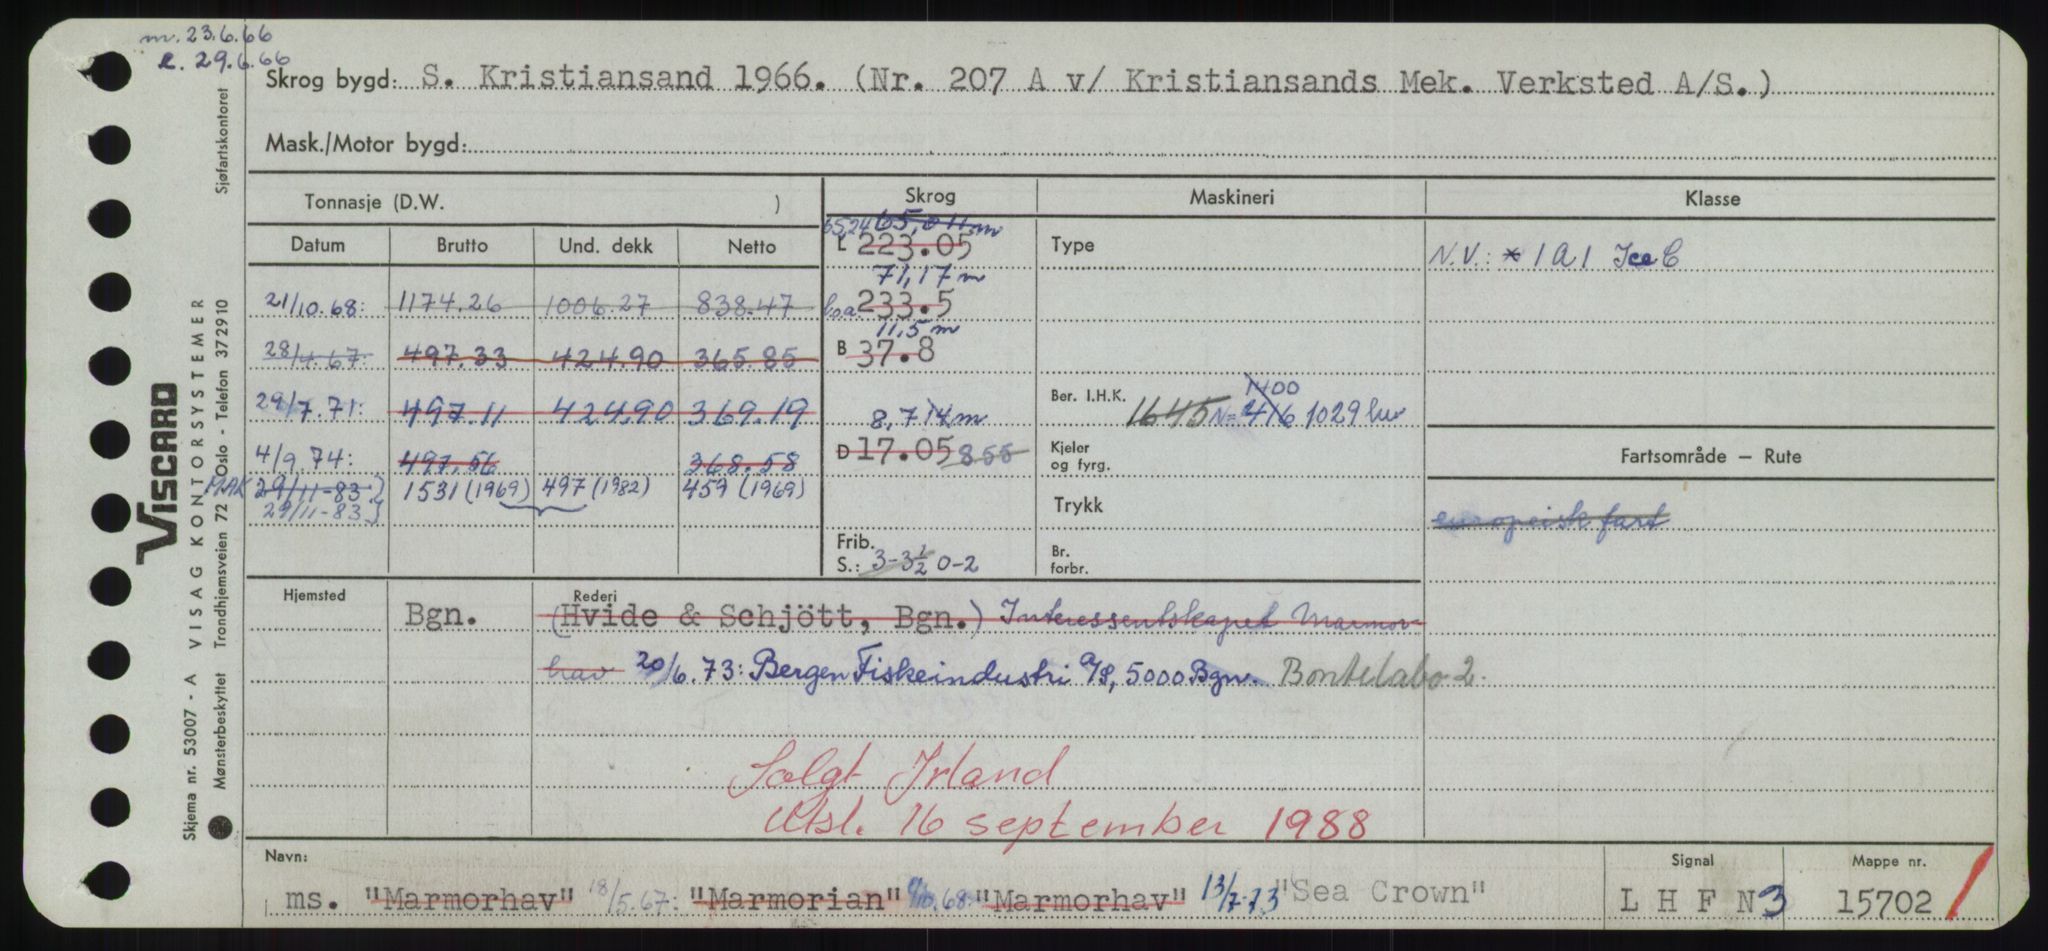 m. 23.6.66
e. 29.6.66
Skrog bygd: S. Kristiansand 1966. (Nr. 207 A v/ Kristiansands Mek. Verksted A/S.)
Mask./Motor bygd:
Tonnasje (D.W. )
Skrog
Maskineri
Klasse
Datum Brutto Und. dekk Netto
65,24 65,011 m
L 223.05
71,17 m
l.o.a. 233.5
11,5 m
B 37.8
8,714 m
D 17.05 855
Frib.
S.: 3-3½ 0-2
21/10.68: 1174.26 1006.27 838.47
28/4.67: 497.33 424.90 365.85
29/7.71: 497.11 424.90 369.19
4/9.74: 497.56 368.58
MAK 29/11-83 } 1531 (1969) 497 (1982) 459 (1969)
29/11-83 }
Type
Ber. I.H.K. 1645 N= 416 1100 1029 hw
Kjeler
og fyrg.
Trykk
Br.
forbr.
N.V.: * 1A1 Ice C
Fartsområde – Rute
europeisk fart
Hjemsted Bgn.
Rederi (Hvide & Schjött, Bgn.) Interessentskapet Marmor-
hav 20/6.73: Bergen Fiskeindustri A/S, 5000 Bgn. Bontelabo 2.
Solgt Irland
Utsl. 16 september 1988
Navn: Signal Mappe nr.
ms. "Marmorhav" 18/5.67: "Marmorian" 68: "Marmorhav" 13/7-73 "Sea Crown" L H F N 3 15702 /
Skjema nr. 53007 - A VISAG KONTORSYSTEMER
VISCARD
Mønsterbeskyttet Trondhjemsveien 72 Oslo - Telefon 372910 Sjøfartskontoret